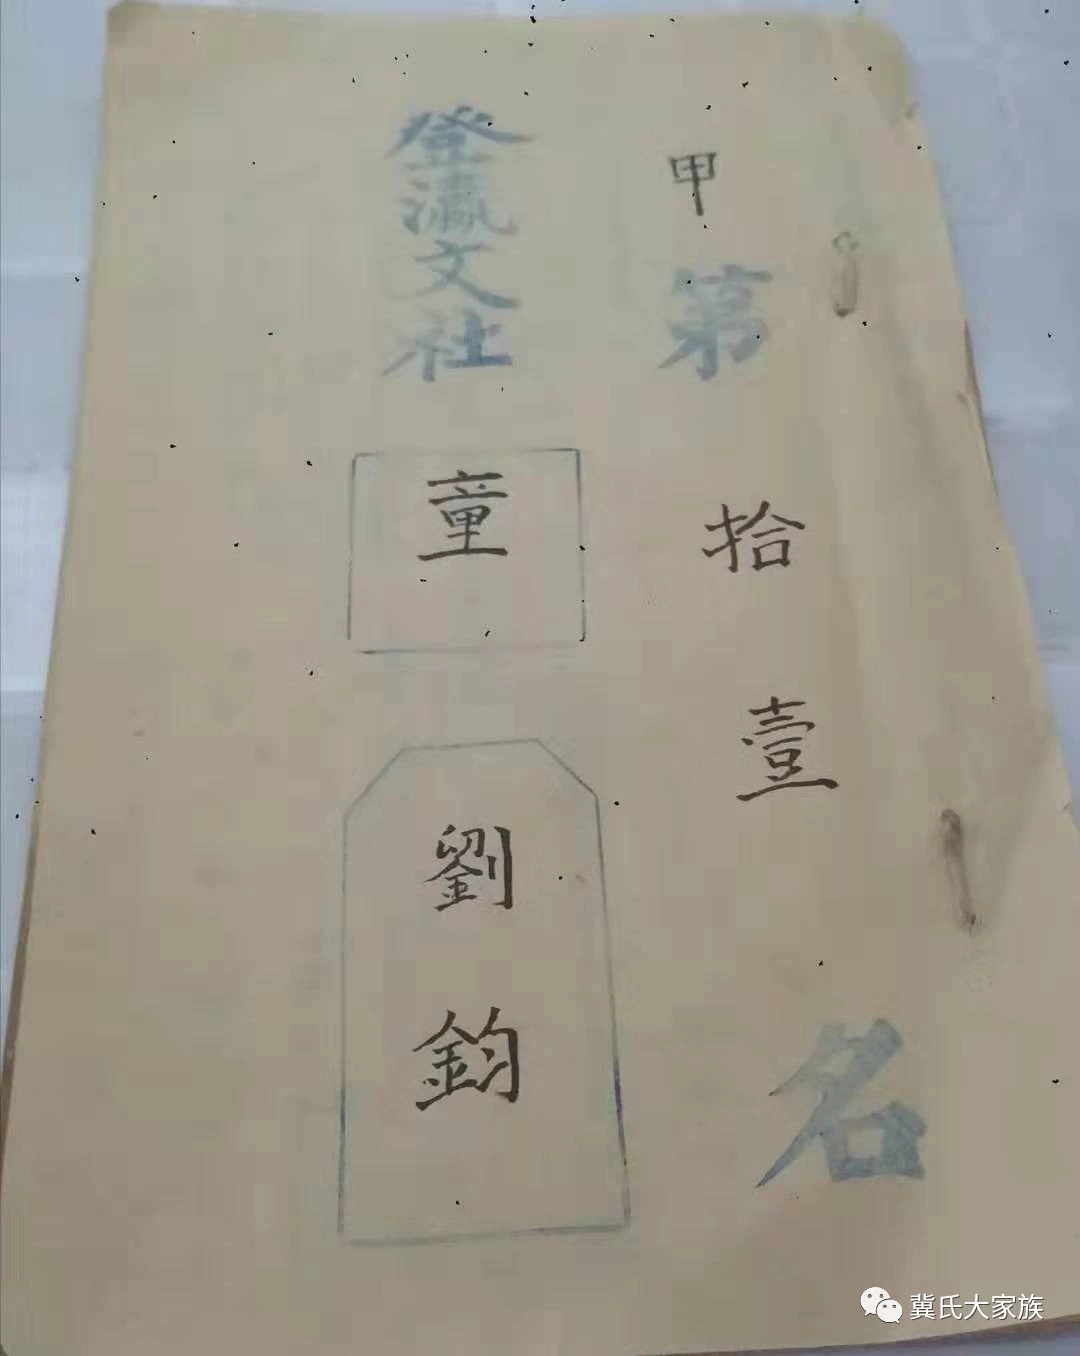 甲第拾壹名
登瀛文社
童
劉鈞
冀氏大家族